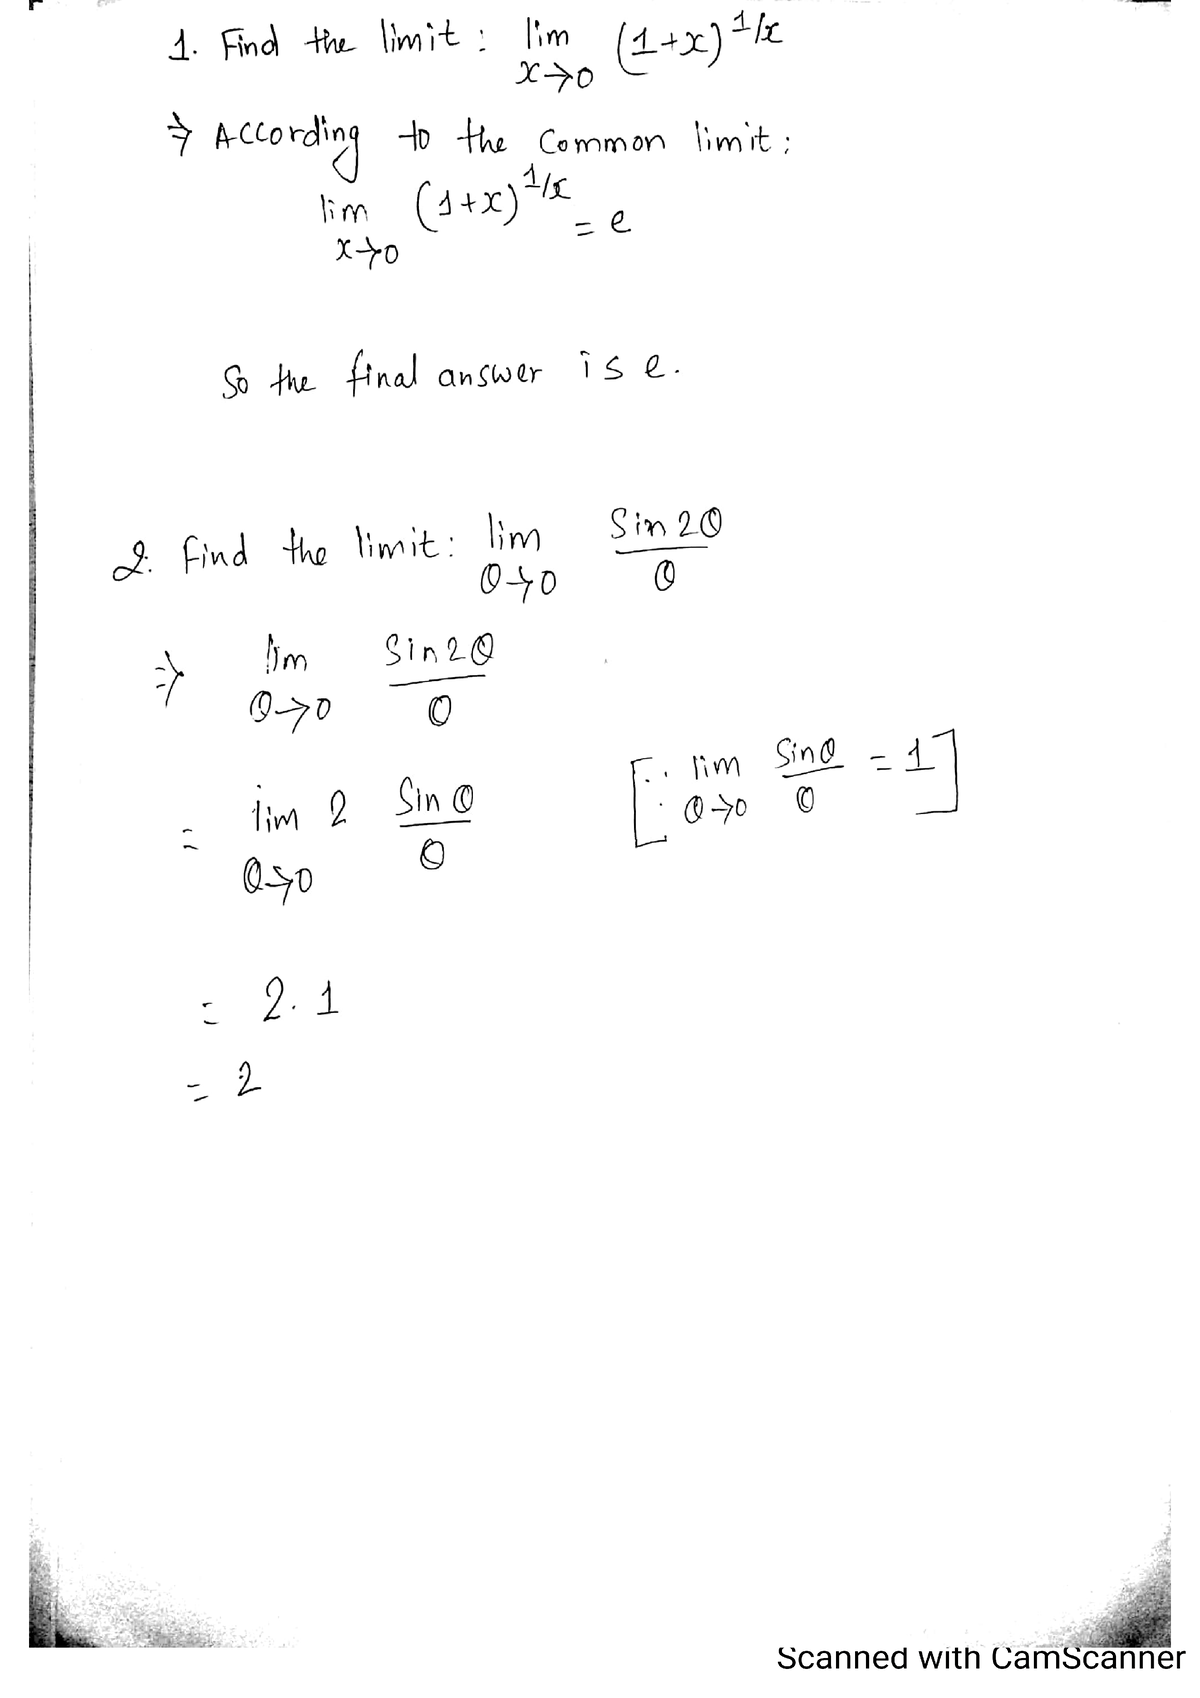 1. Find the limit : lim (1+x)^1/x
x→0
⇒ According to the Common limit ;
lim (1+x)^1/x = e
x→0
So the final answer is e.
2. Find the limit : lim Sin 2θ
θ→0 θ
⇒ lim Sin 2θ
θ→0 θ
= lim 2 Sin θ [∵ lim Sin θ = 1]
θ→0 θ θ→0 θ
= 2. 1
= 2
Scanned with CamScanner